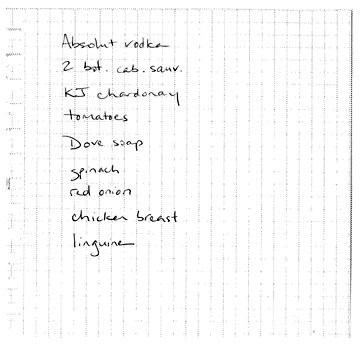 Absolut vodka
2 bot. cab. sauv.
KJ chardonay
tomatoes
Dove soap
spinach
red onion
chicken breast
linguine